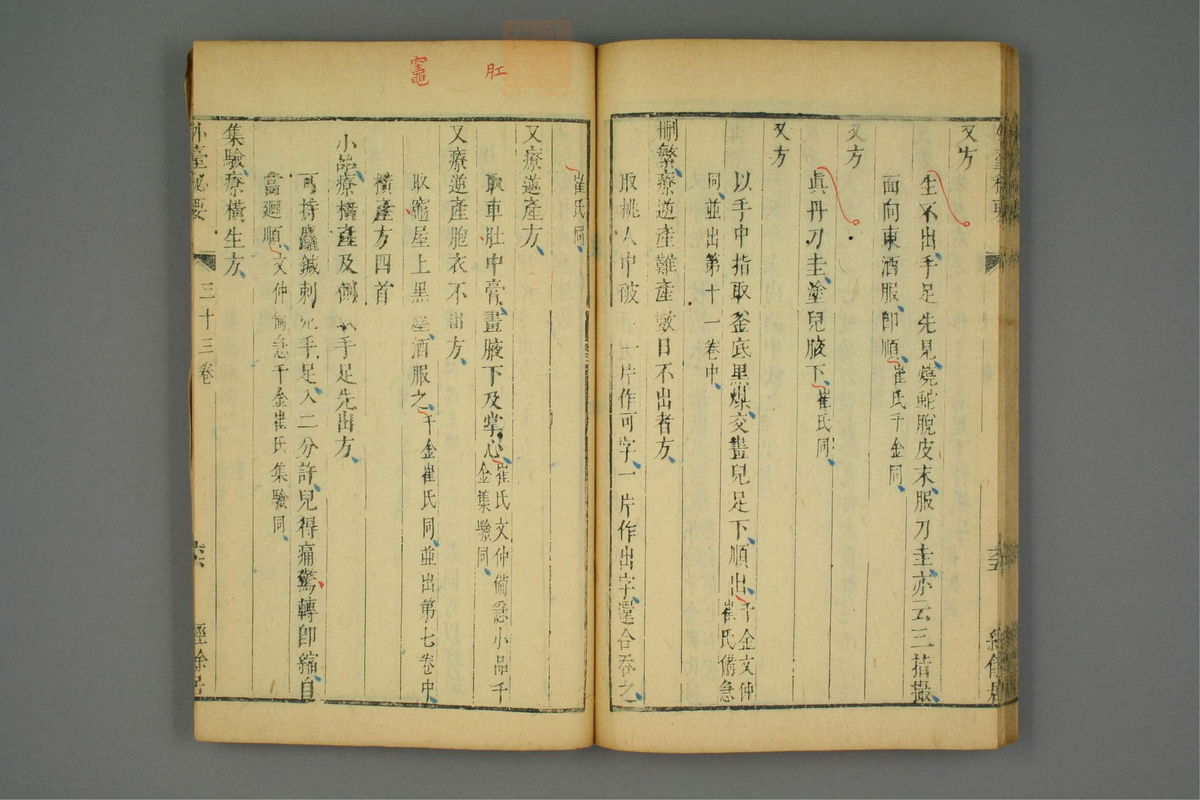 又方
生不出手足先見燒蛇脫皮末服刀圭亦云三指撮
面向東酒服即順崔氏千金同
又方
真丹刀圭塗兒腋下崔氏同
又方
以手中指取釜底黑煤交畫兒足下順出千金文仲
崔氏備急
同並出第十一卷中
刪繁療逆產難產數日不出者方
取桃人中破一片作可字一片作出字還合吞之
崔氏同
又療逆產方
取車肚中膏畫腋下及掌心崔氏文仲備急小品千
金集驗同
又療逆產胞衣不出方
取竈屋上黑塵酒服之千金崔氏同並出第七卷中
橫產方四首
小品療橫產及側或手足先出方
可持麤鍼刺兒手足入二分許兒得痛驚轉即縮自
當廻順文仲備急千金崔氏集驗同
集驗療橫生方
外臺秘要
三十三卷
六六
經餘居
肛
竈